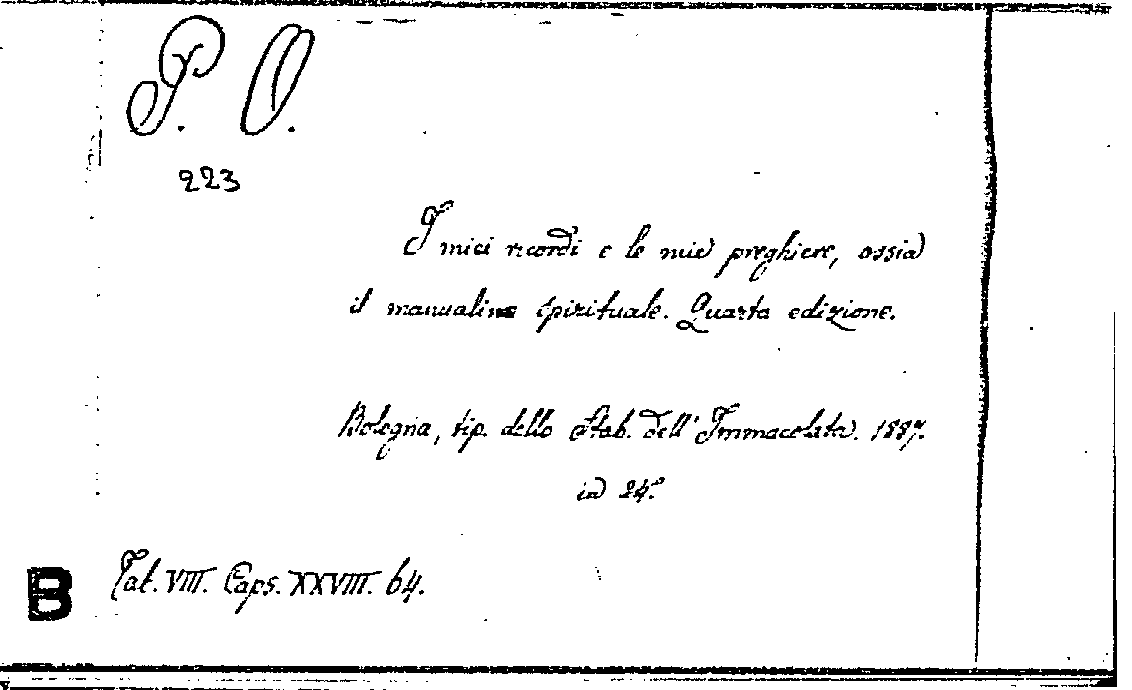 P. O.
223
I miei ricordi e le mie preghiere, ossia
il manualino spirituale. Quarta edizione.
Bologna, tip. dello Stab. dell'Immacolata. 1887.
in 24.°
B Tab. VIII. Caps. XXVIII. 64.